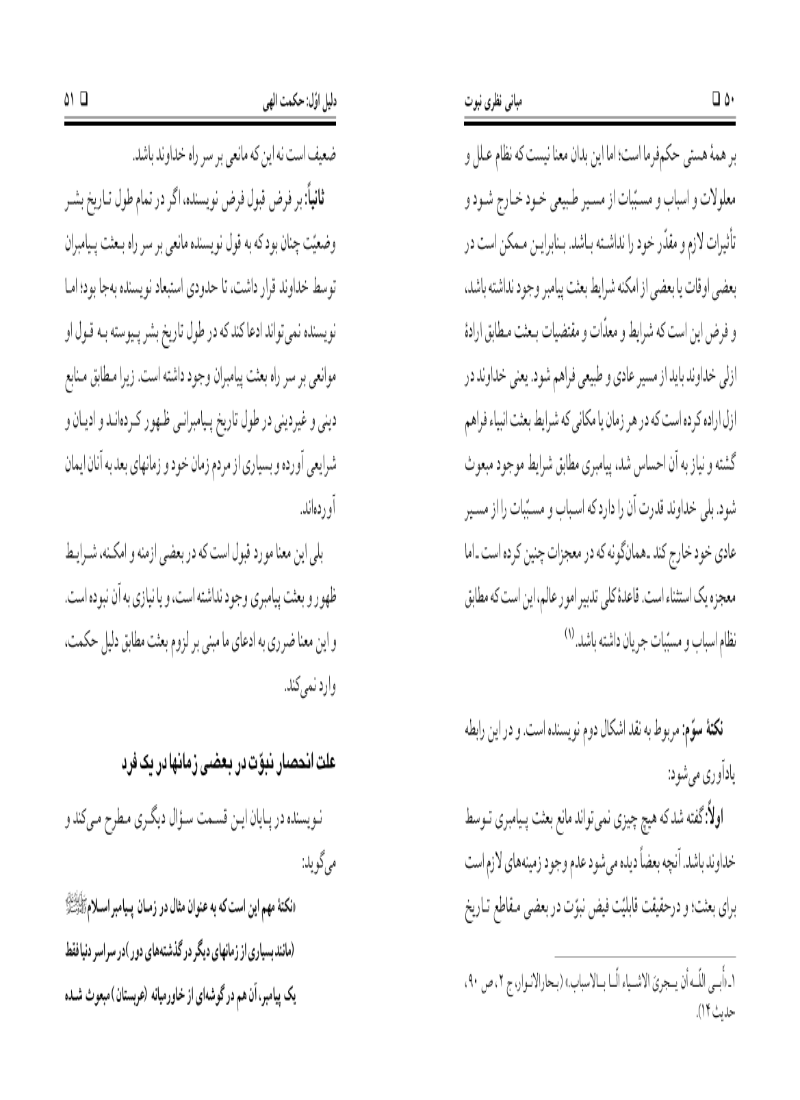 ۵۰ □ مبانی نظری نبوت
بر همهٔ هستی حکم‌فرما است؛ اما این بدان معنا نیست که نظام عـلل و
معلولات و اسباب و مسبّبات از مسیر طـبیعی خـود خـارج شـود و
تأثیرات لازم و مقدّر خود را نداشـته بـاشد. بـنابرایـن مـمکن است در
بعضی اوقات یا بعضی از امکنه شرایط بعثت پیامبر وجود نداشته باشد،
و فرض این است که شرایط و معدّات و مقتضیات بـعثت مـطابق ارادهٔ
ازلی خداوند باید از مسیر عادی و طبیعی فراهم شود. یعنی خداوند در
ازل اراده کرده است که در هر زمان یا مکانی که شرایط بعثت انبیاء فراهم
گشته و نیاز به آن احساس شد، پیامبری مطابق شرایط موجود مبعوث
شود. بلی خداوند قدرت آن را دارد که اسـباب و مسـبّبات را از مسـیر
عادی خود خارج کند ـ همان‌گونه که در معجزات چنین کرده است ـ اما
معجزه یک استثناء است. قاعدهٔ کلی تدبیر امور عالم، این است که مطابق
نظام اسباب و مسبّبات جریان داشته باشد.(۱)
نکتهٔ سوّم: مربوط به نقد اشکال دوم نویسنده است. و در این رابطه
یادآوری می‌شود:
اولاً: گفته شد که هیچ چیزی نمی‌تواند مانع بعثت پـیامبری تـوسط
خداوند باشد. آنچه بعضاً دیده می‌شود عدم وجود زمینه‌های لازم است
برای بعثت؛ و درحقیقت قابلیّت فیض نبوّت در بعضی مـقاطع تـاریخ
۱ـ «أبـی اللّـه أن یـجریَ الاشـیاء الّـا بـالاسباب.» (بـحارالانـوار، ج ۲، ص ۹۰،
حدیث ۱۴).
دلیل اوّل: حکمت الهی □ ۵۱
ضعیف است نه این که مانعی بر سر راه خداوند باشد.
ثانیاً: بر فرض قبول فرض نویسنده، اگر در تمام طول تـاریخ بشـر
وضعیّت چنان بود که به قول نویسنده مانعی بر سر راه بـعثت پـیامبران
توسط خداوند قرار داشت، تا حدودی استبعاد نویسنده به‌جا بود؛ امـا
نویسنده نمی‌تواند ادعا کند که در طول تاریخ بشر پـیوسته بـه قـول او
موانعی بر سر راه بعثت پیامبران وجود داشته است. زیرا مـطابق مـنابع
دینی و غیردینی در طول تاریخ پـیامبرانـی ظـهور کـرده‌انـد و ادیـان و
شرایعی آورده و بسیاری از مردم زمان خود و زمانهای بعد به آنان ایمان
آورده‌اند.
بلی این معنا مورد قبول است که در بعضی ازمنه و امکـنه، شـرایـط
ظهور و بعثت پیامبری وجود نداشته است، و یا نیازی به آن نبوده است.
و این معنا ضرری به ادعای ما مبنی بر لزوم بعثت مطابق دلیل حکمت،
وارد نمی‌کند.
علت انحصار نبوّت در بعضی زمانها در یک فرد
نـویسنده در پـایان ایـن قـسمت سـؤال دیگـری مـطرح مـی‌کند و
می‌گوید:
«نکتهٔ مهم این است که به عنوان مثال در زمـان پـیامبر اسـلام ﷺ
(مانند بسیاری از زمانهای دیگر در گذشته‌های دور) در سراسر دنیا فقط
یک پیامبر، آن هم در گوشه‌ای از خاورمیانه (عربستان) مبعوث شـده